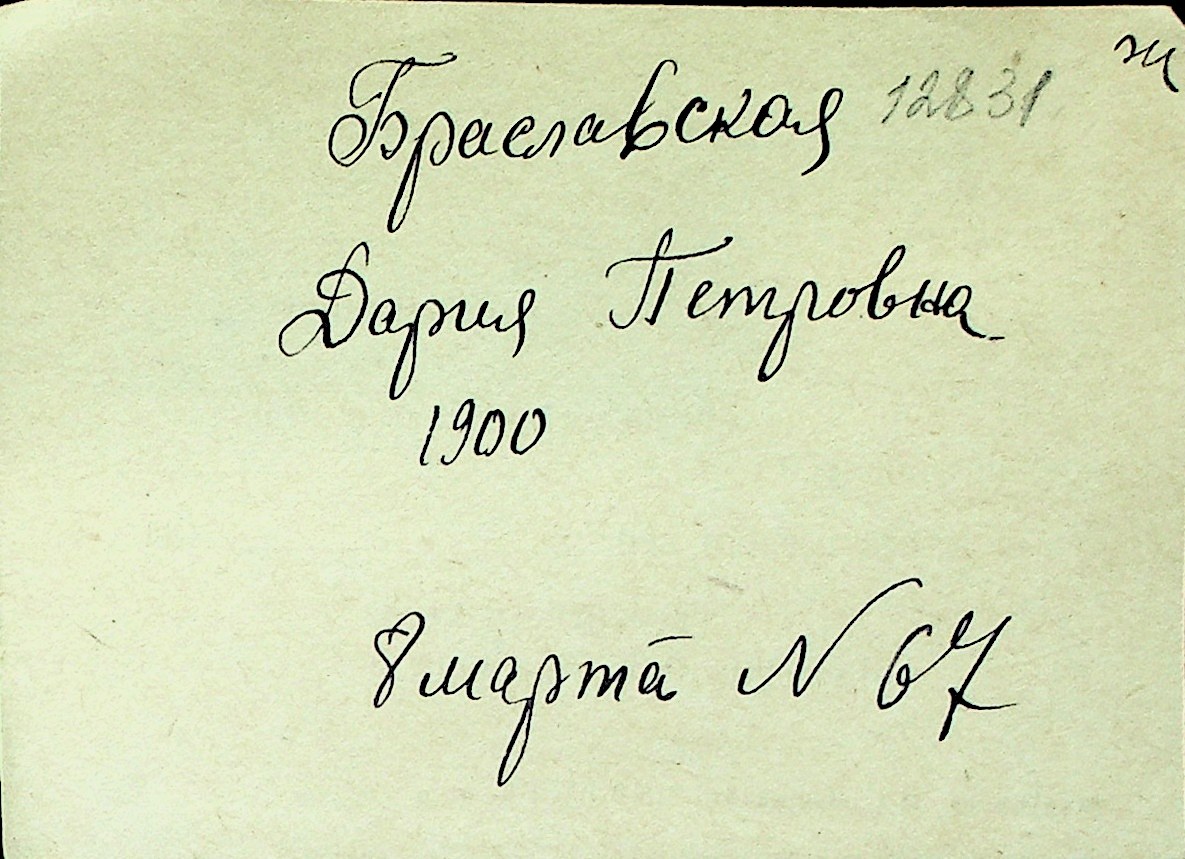 Браславская 12831 ж
Дария Петровна
1900
8 марта N 67